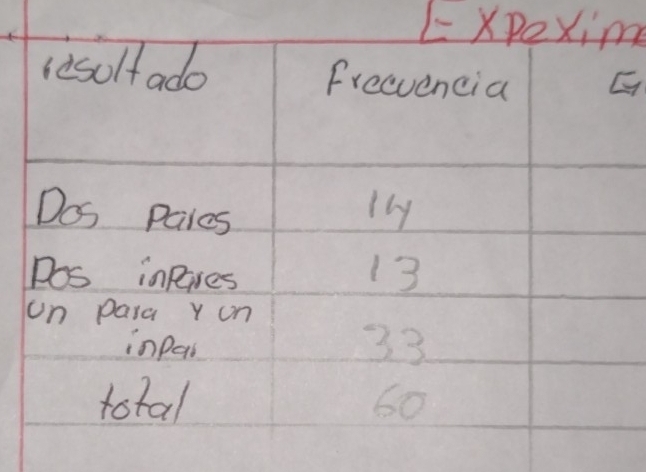 Expexime
resultado Frecuencia
Dos Pares 14
Dos inpares 13
un para y un
inpar 33
total 60